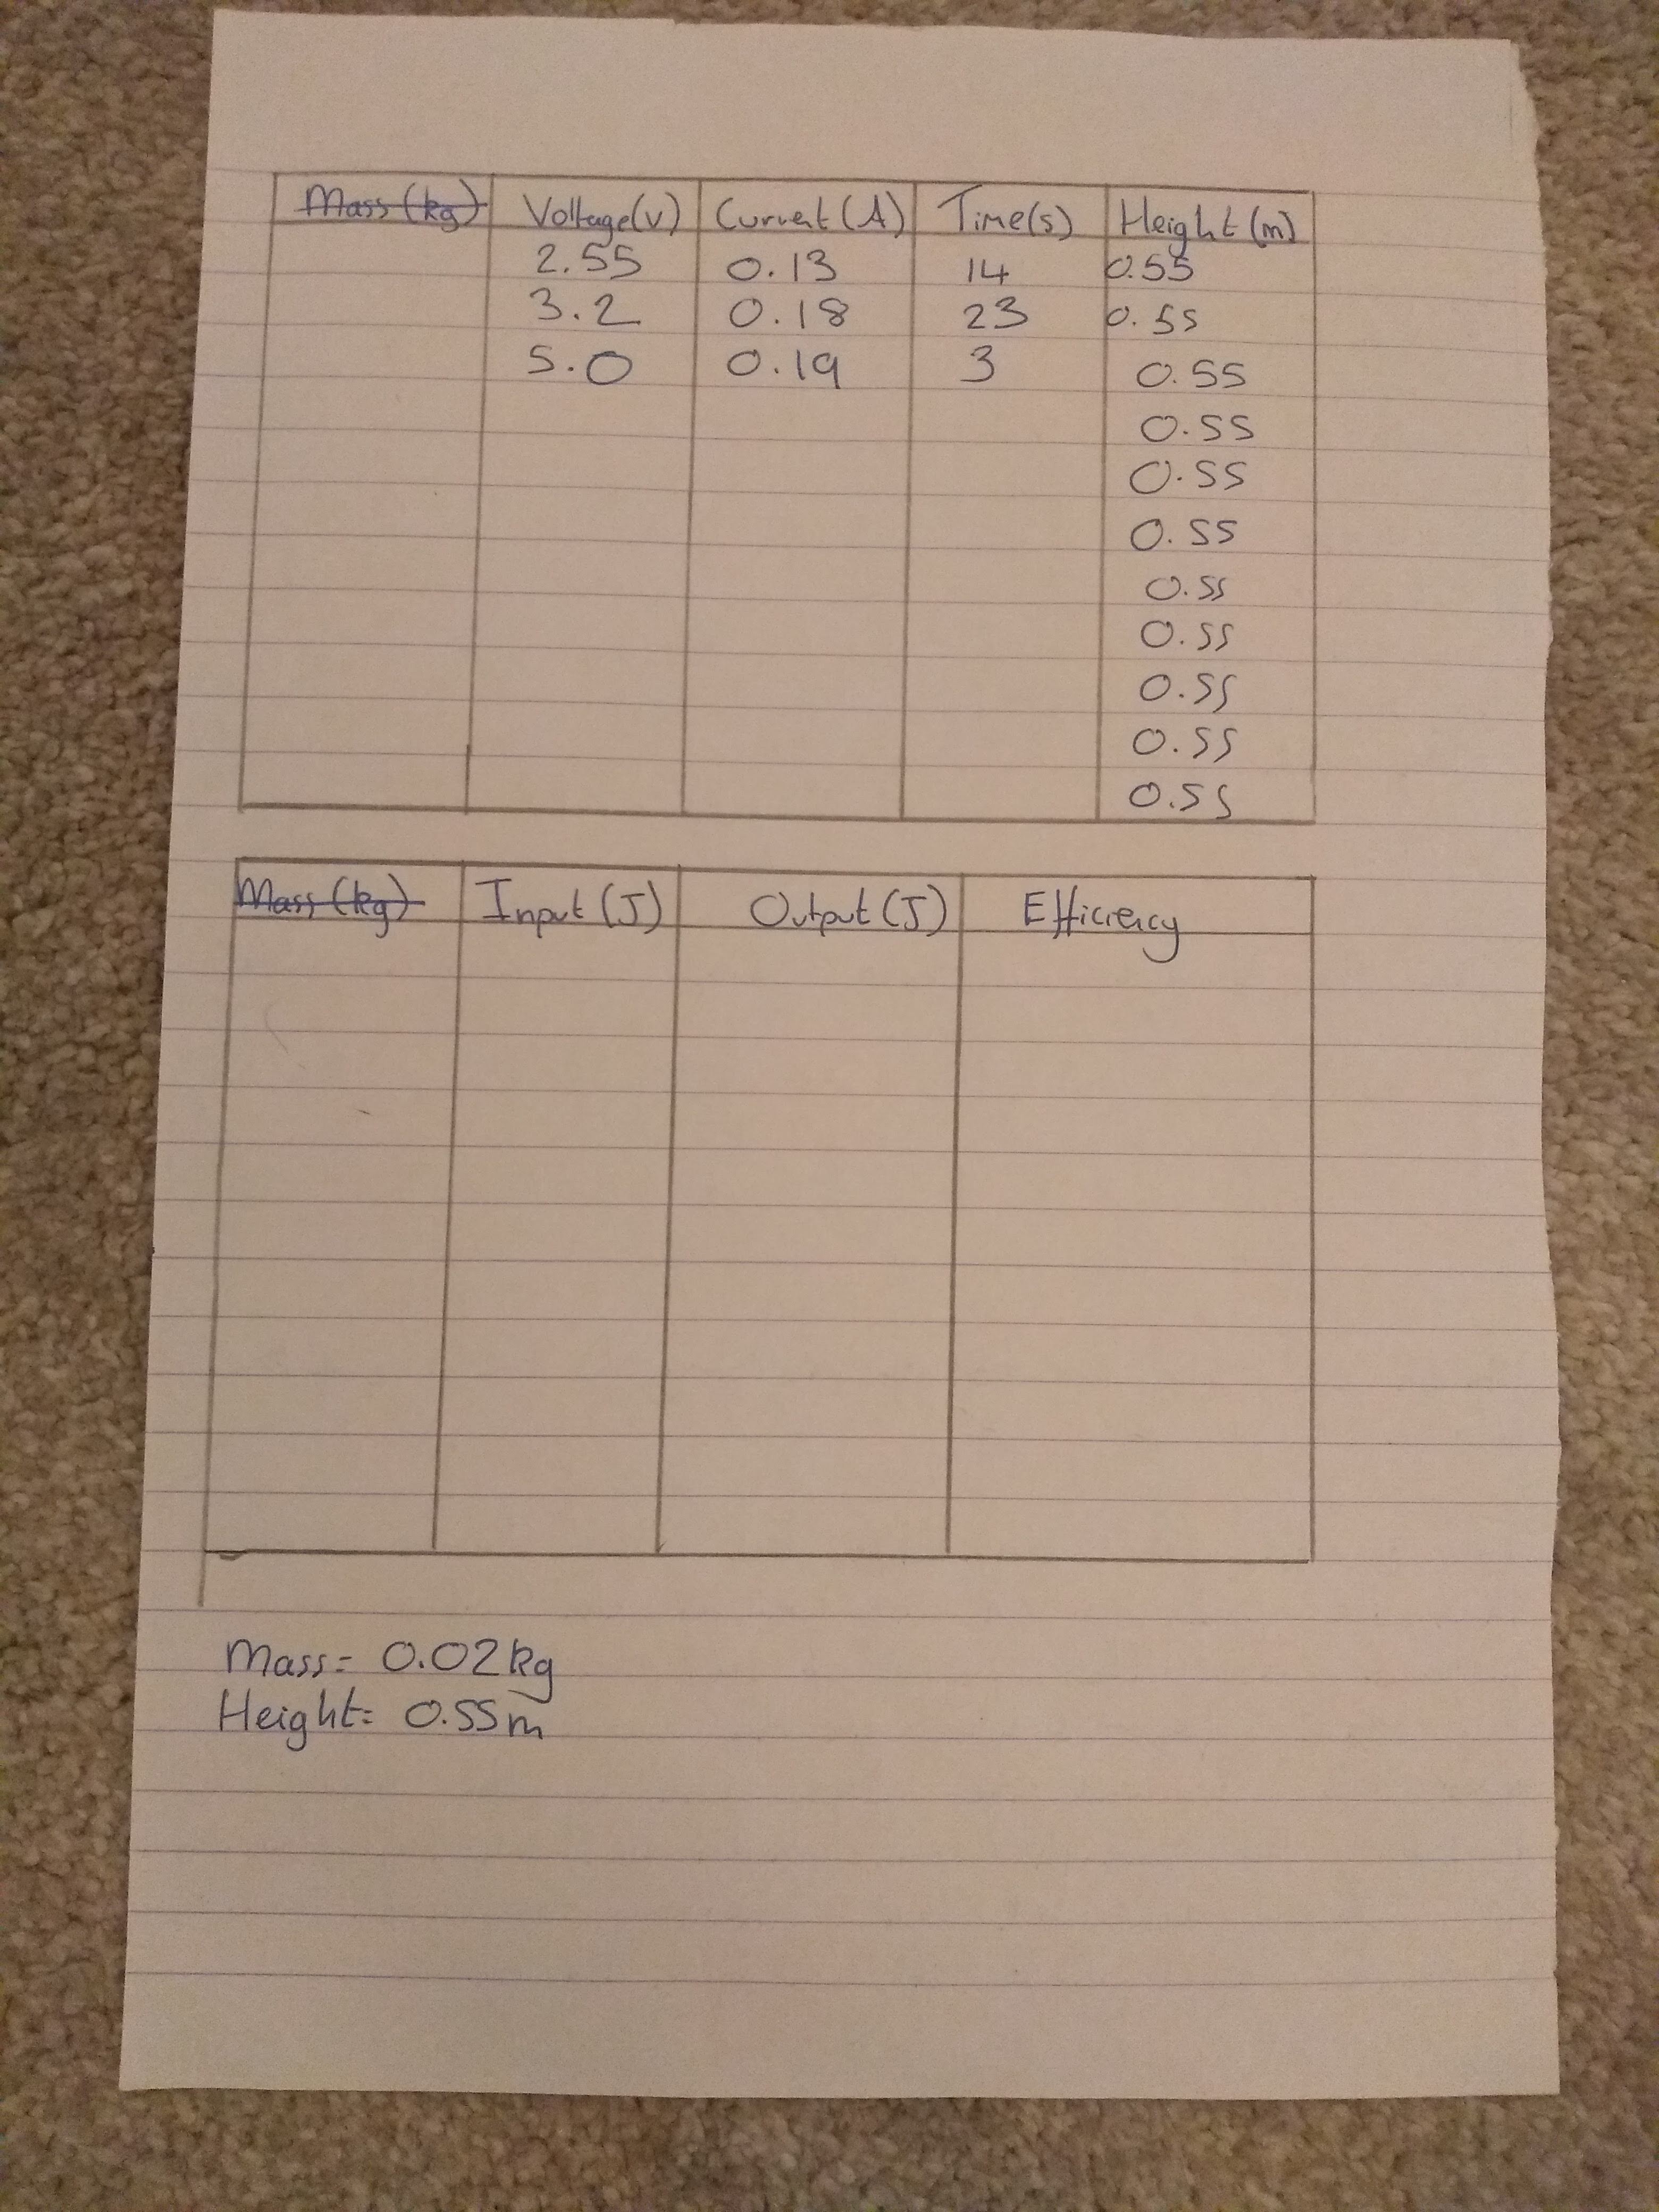 Mass (kg) Voltage(v) Current (A) Time(s) Height (m)
2.55 0.13 14 0.55
3.2 0.18 23 0.55
5.0 0.19 3 0.55
0.55
0.55
0.55
0.55
0.55
0.55
0.55
0.55
Mass (kg) Input (J) Output (J) Efficiency
Mass= 0.02kg
Height= 0.55m